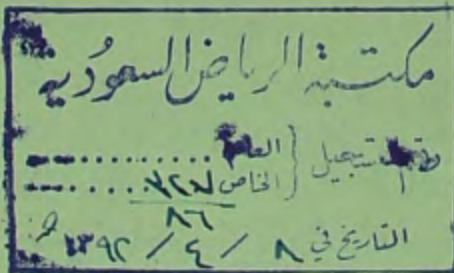 مكتبة الرياض السعودية
رقم التسجيل { العام ..........
الخاص
٨٦
التاريخ في ٨ / ٤ / ١٣٩٢ هـ